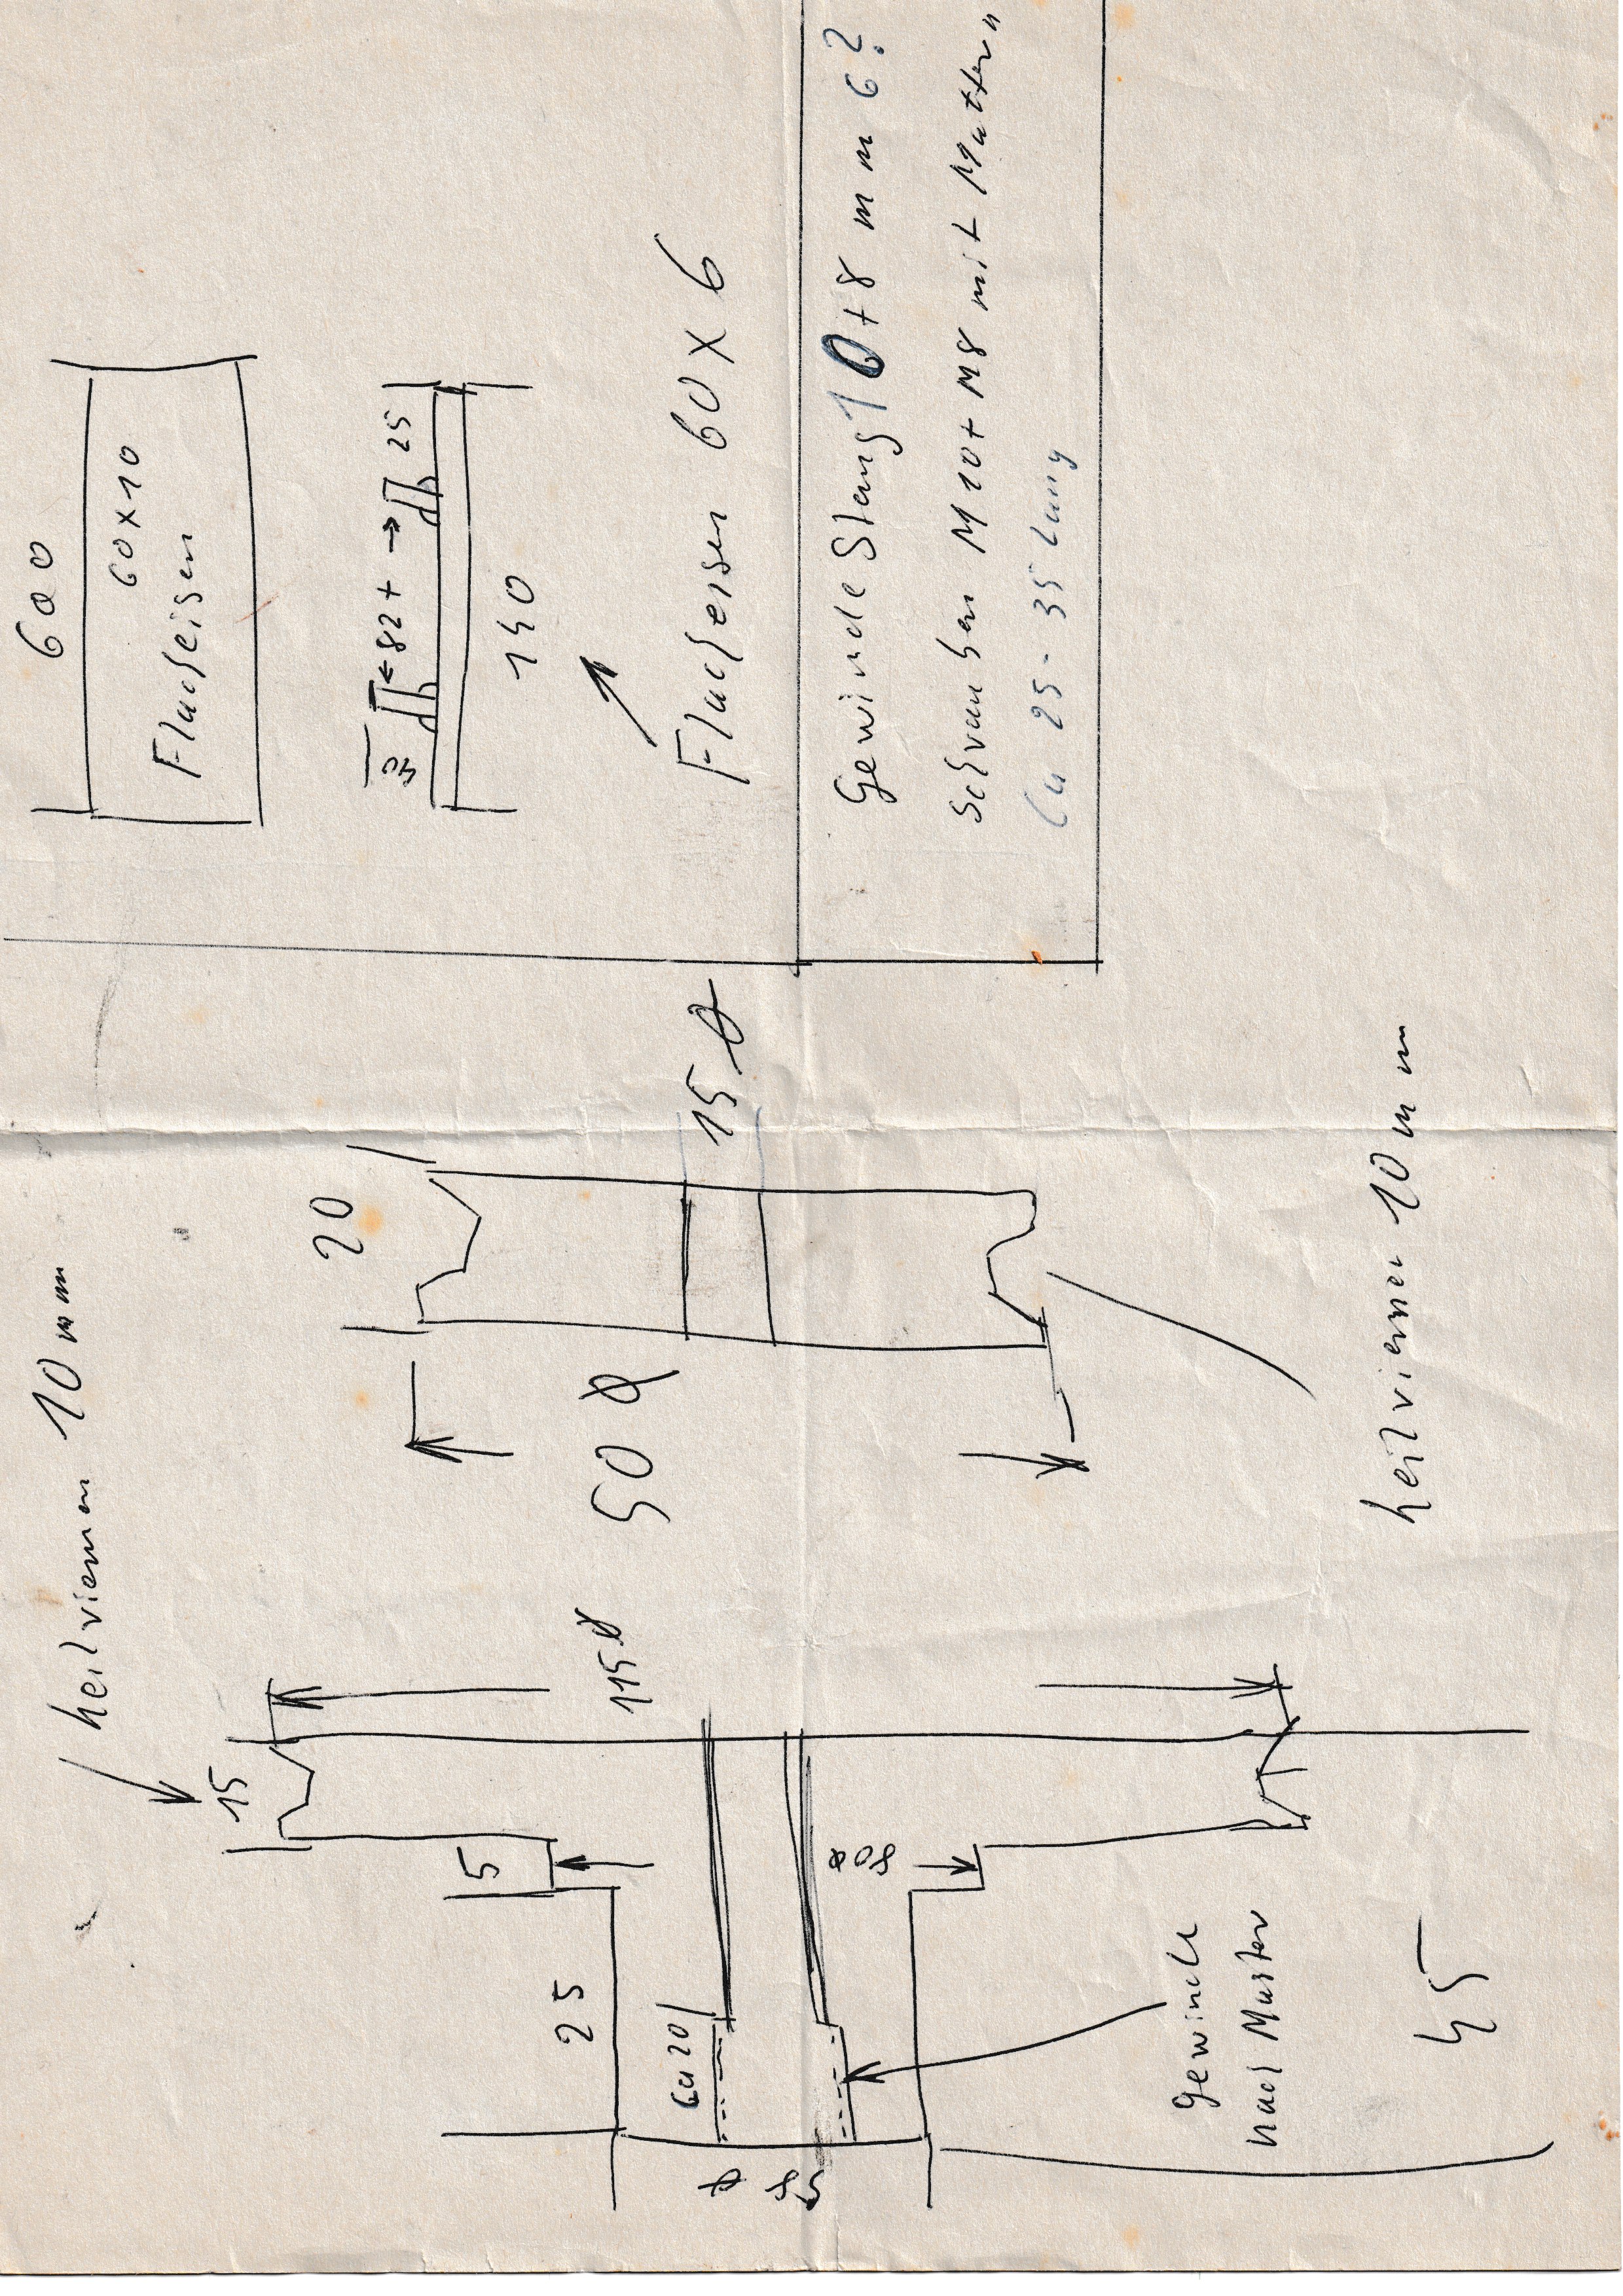 Keilriemen 10 mm
15
5
25
Ca 20
115 Ø
80 Ø
Gewinde
nach Muster
45
20
50 Ø
15 Ø
Keilriemen 10 mm
600
60 x 10
Flacheisen
40
82
25
140
Flacheisen 60 x 6
Gewinde Stang 10 + 8 mm 6?
Schrauben M10 + M8 mit Muttern
Ca 25 - 35 lang